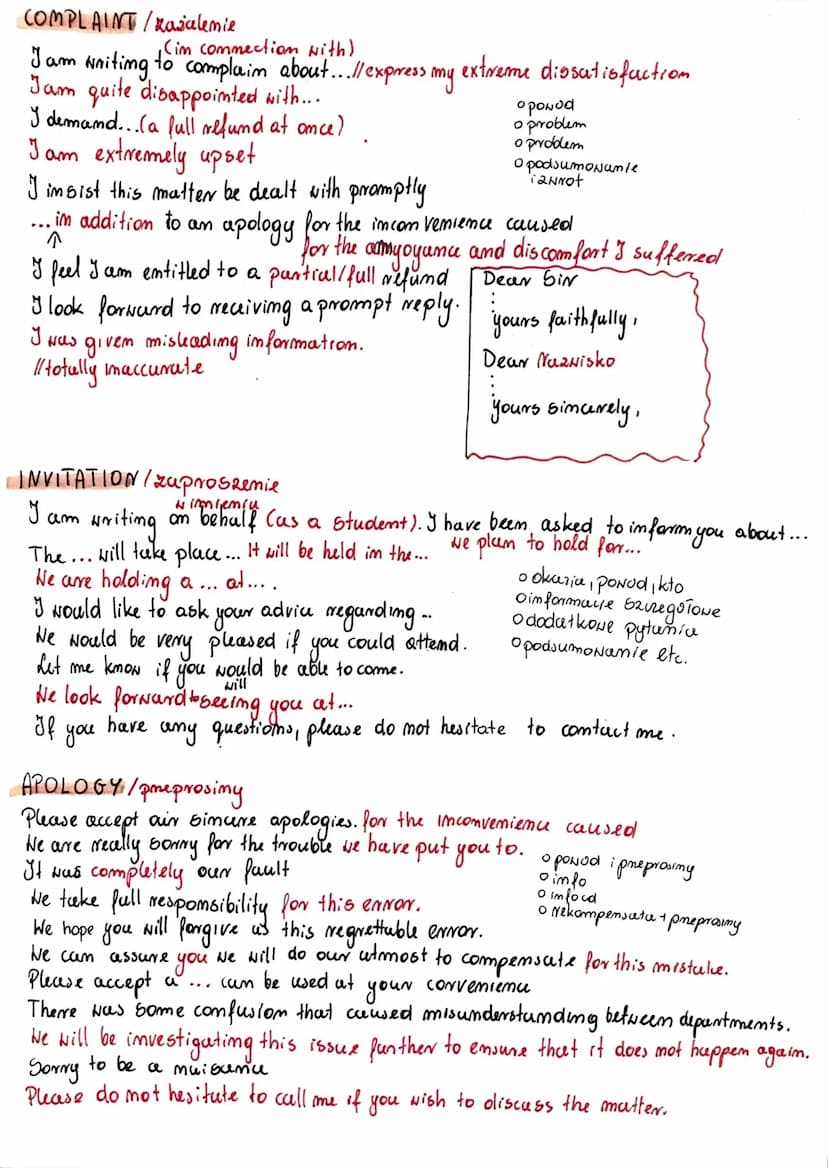 COMPLAINT / zażalenie
(in connection with)
I am writing to complain about...//express my extreme dissatisfaction
I am quite disappointed with...
I demand...(a full refund at once)
I am extremely upset
o powód
o problem
o problem
o podsumowanie
i zwrot
I insist this matter be dealt with promptly
...in addition to an apology for the inconvenience caused
for the annyoyance and discomfort I suffered
I feel I am entitled to a partial/full refund
I look forward to receiving a prompt reply.
I was given misleading information.
//totally inaccurate
Dear Sir
⋮
yours faithfully,
Dear Nazwisko
⋮
yours sincerely,
INVITATION / zaproszenie
w imieniu
I am writing on behalf (as a student). I have been asked to inform you about...
The ... will take place... It will be held in the... we plan to hold for...
We are holding a ... at....
I would like to ask your advice regarding...
We would be very pleased if you could attend.
Let me know if you would be able to come.
will
We look forward to seeing you at...
If you have any questions, please do not hesitate to contact me.
o okazja, powód, kto
o informacje szczegółowe
o dodatkowe pytania
o podsumowanie etc.
APOLOGY / przeprosiny
Please accept our sincere apologies. for the inconvenience caused
We are really sorry for the trouble we have put you to.
It was completely our fault
We take full responsibility for this error.
We hope you will forgive us this regrettable error.
o powód i przeprosiny
o info
o info cd
o rekompensata + przeprosiny
We can assure you we will do our utmost to compensate for this mistake.
Please accept a ... can be used at your convenience
There was some confusion that caused misunderstanding between departments.
We will be investigating this issue further to ensure that it does not happen again.
Sorry to be a nuisance
Please do not hesitate to call me if you wish to discuss the matter.